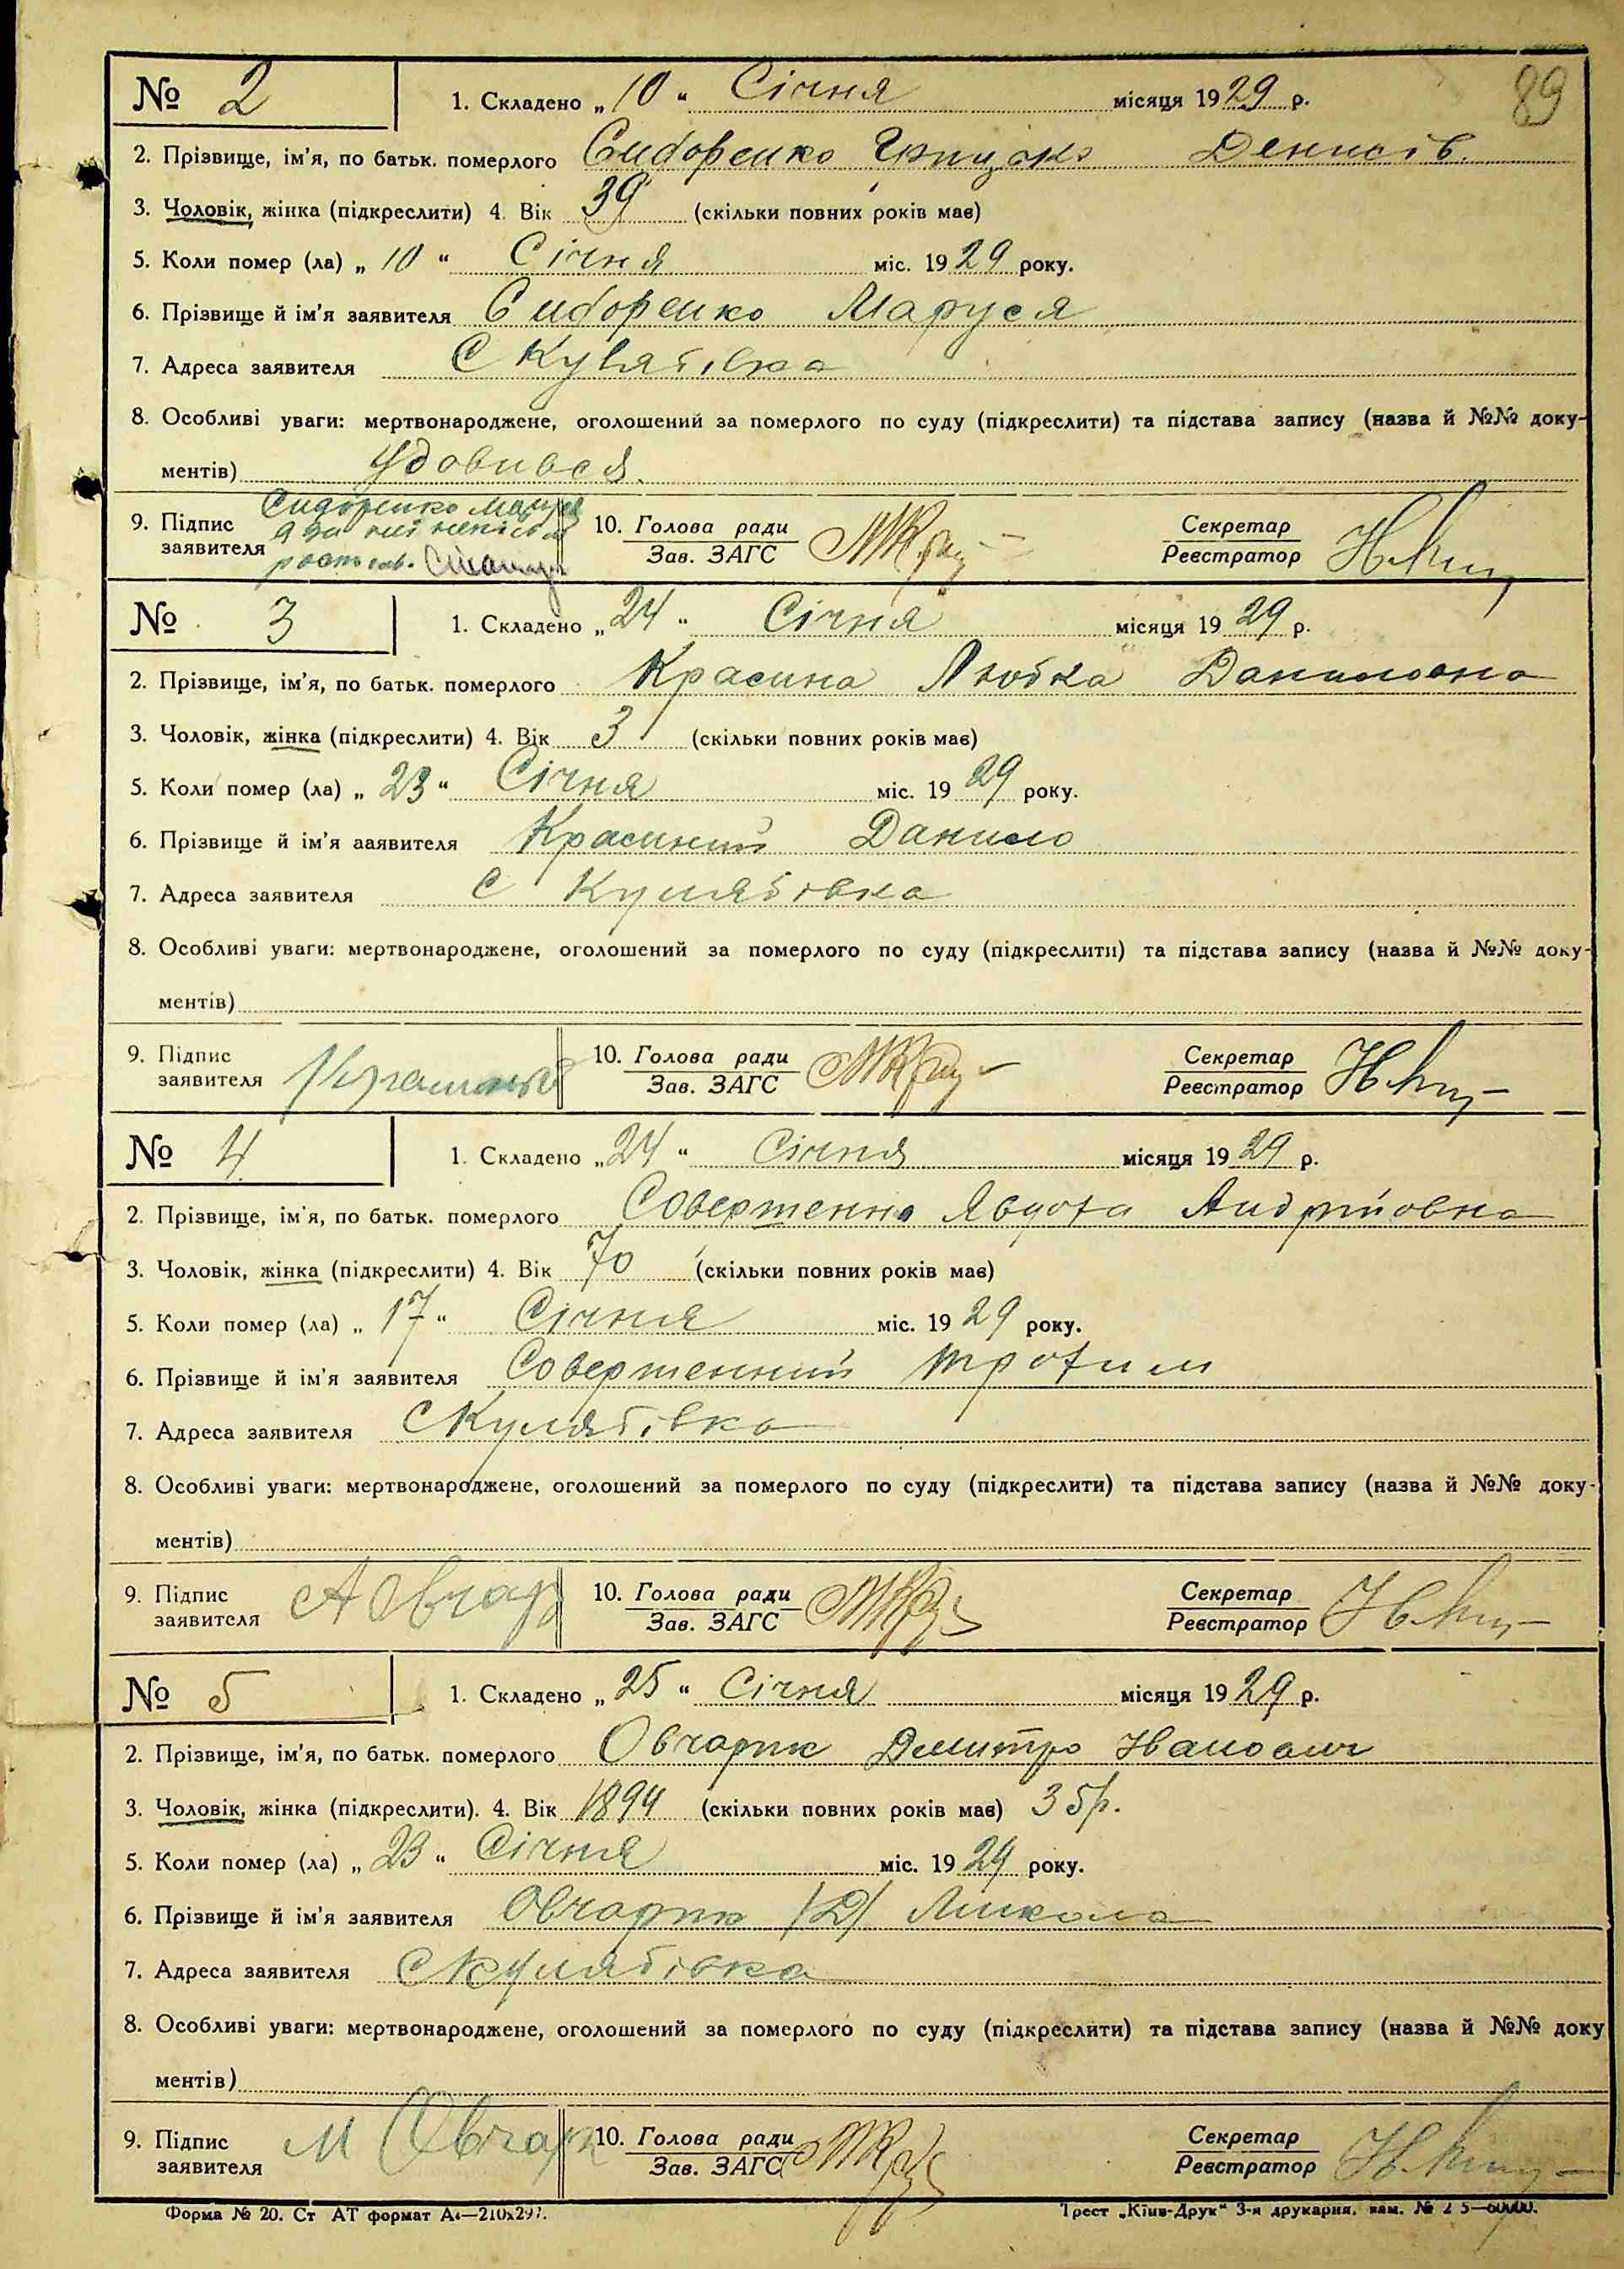 89
№ 2 1. Складено „10“ Січня місяця 1929 р.
2. Прізвище, ім'я, по батьк. померлого Сидоренко Грицько Денисів.
3. Чоловік, жінка (підкреслити) 4. Вік 39 (скільки повних років має)
5. Коли помер (ла) „10“ Січня міс. 1929 року.
6. Прізвище й ім'я заявителя Сидоренко Маруся
7. Адреса заявителя С Кулябівка
8. Особливі уваги: мертвонароджене, оголошений за померлого по суду (підкреслити) та підстава запису (назва й №№ доку-
ментів) Удовився.
9. Підпис заявителя Сидоренко 10. Голова ради Зав. ЗАГС Секретар Реєстратор
№ 3 1. Складено „24“ Січня місяця 1929 р.
2. Прізвище, ім'я, по батьк. померлого Красина Любка Даниловна
3. Чоловік, жінка (підкреслити) 4. Вік 3 (скільки повних років має)
5. Коли помер (ла) „23“ Січня міс. 1929 року.
6. Прізвище й ім'я ааявителя Красиний Данило
7. Адреса заявителя С Кулябівка
8. Особливі уваги: мертвонароджене, оголошений за померлого по суду (підкреслити) та підстава запису (назва й №№ доку-
ментів)
9. Підпис заявителя 10. Голова ради Зав. ЗАГС Секретар Реєстратор
№ 4 1. Складено „24“ Січня місяця 1929 р.
2. Прізвище, ім'я, по батьк. померлого Совершенна Явдоха Андрійовна
3. Чоловік, жінка (підкреслити) 4. Вік 70 (скільки повних років має)
5. Коли помер (ла) „17“ Січня міс. 1929 року.
6. Прізвище й ім'я заявителя Совершенний Трохим
7. Адреса заявителя С Кулябівка
8. Особливі уваги: мертвонароджене, оголошений за померлого по суду (підкреслити) та підстава запису (назва й №№ доку-
ментів)
9. Підпис заявителя А Овчар 10. Голова ради Зав. ЗАГС Секретар Реєстратор
№ 5 1. Складено „25“ Січня місяця 1929 р.
2. Прізвище, ім'я, по батьк. померлого Овчарик Дмитро Іванович
3. Чоловік, жінка (підкреслити). 4. Вік 1894 (скільки повних років має) 35р.
5. Коли помер (ла) „23“ Січня міс. 1929 року.
6. Прізвище й ім'я заявителя Овчарик /Д/ Микола
7. Адреса заявителя С Кулябівка
8. Особливі уваги: мертвонароджене, оголошений за померлого по суду (підкреслити) та підстава запису (назва й №№ доку
ментів)
9. Підпис заявителя М Овчар 10. Голова ради Зав. ЗАГС Секретар Реєстратор
Форма № 20. Ст АТ формат А4—210x297. Трест „Київ-Друк“ 3-я друкарня. зам. № 2 5—60000.